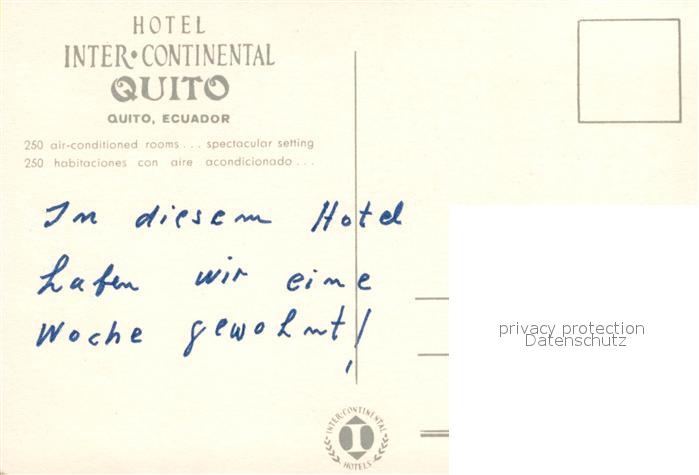 HOTEL
INTER•CONTINENTAL
QUITO
QUITO, ECUADOR
250 air-conditioned rooms... spectacular setting
250 habitaciones con aire acondicionado...
In diesem Hotel
haben wir eine
Woche gewohnt!
privacy protection
Datenschutz
INTER·CONTINENTAL
I
HOTELS